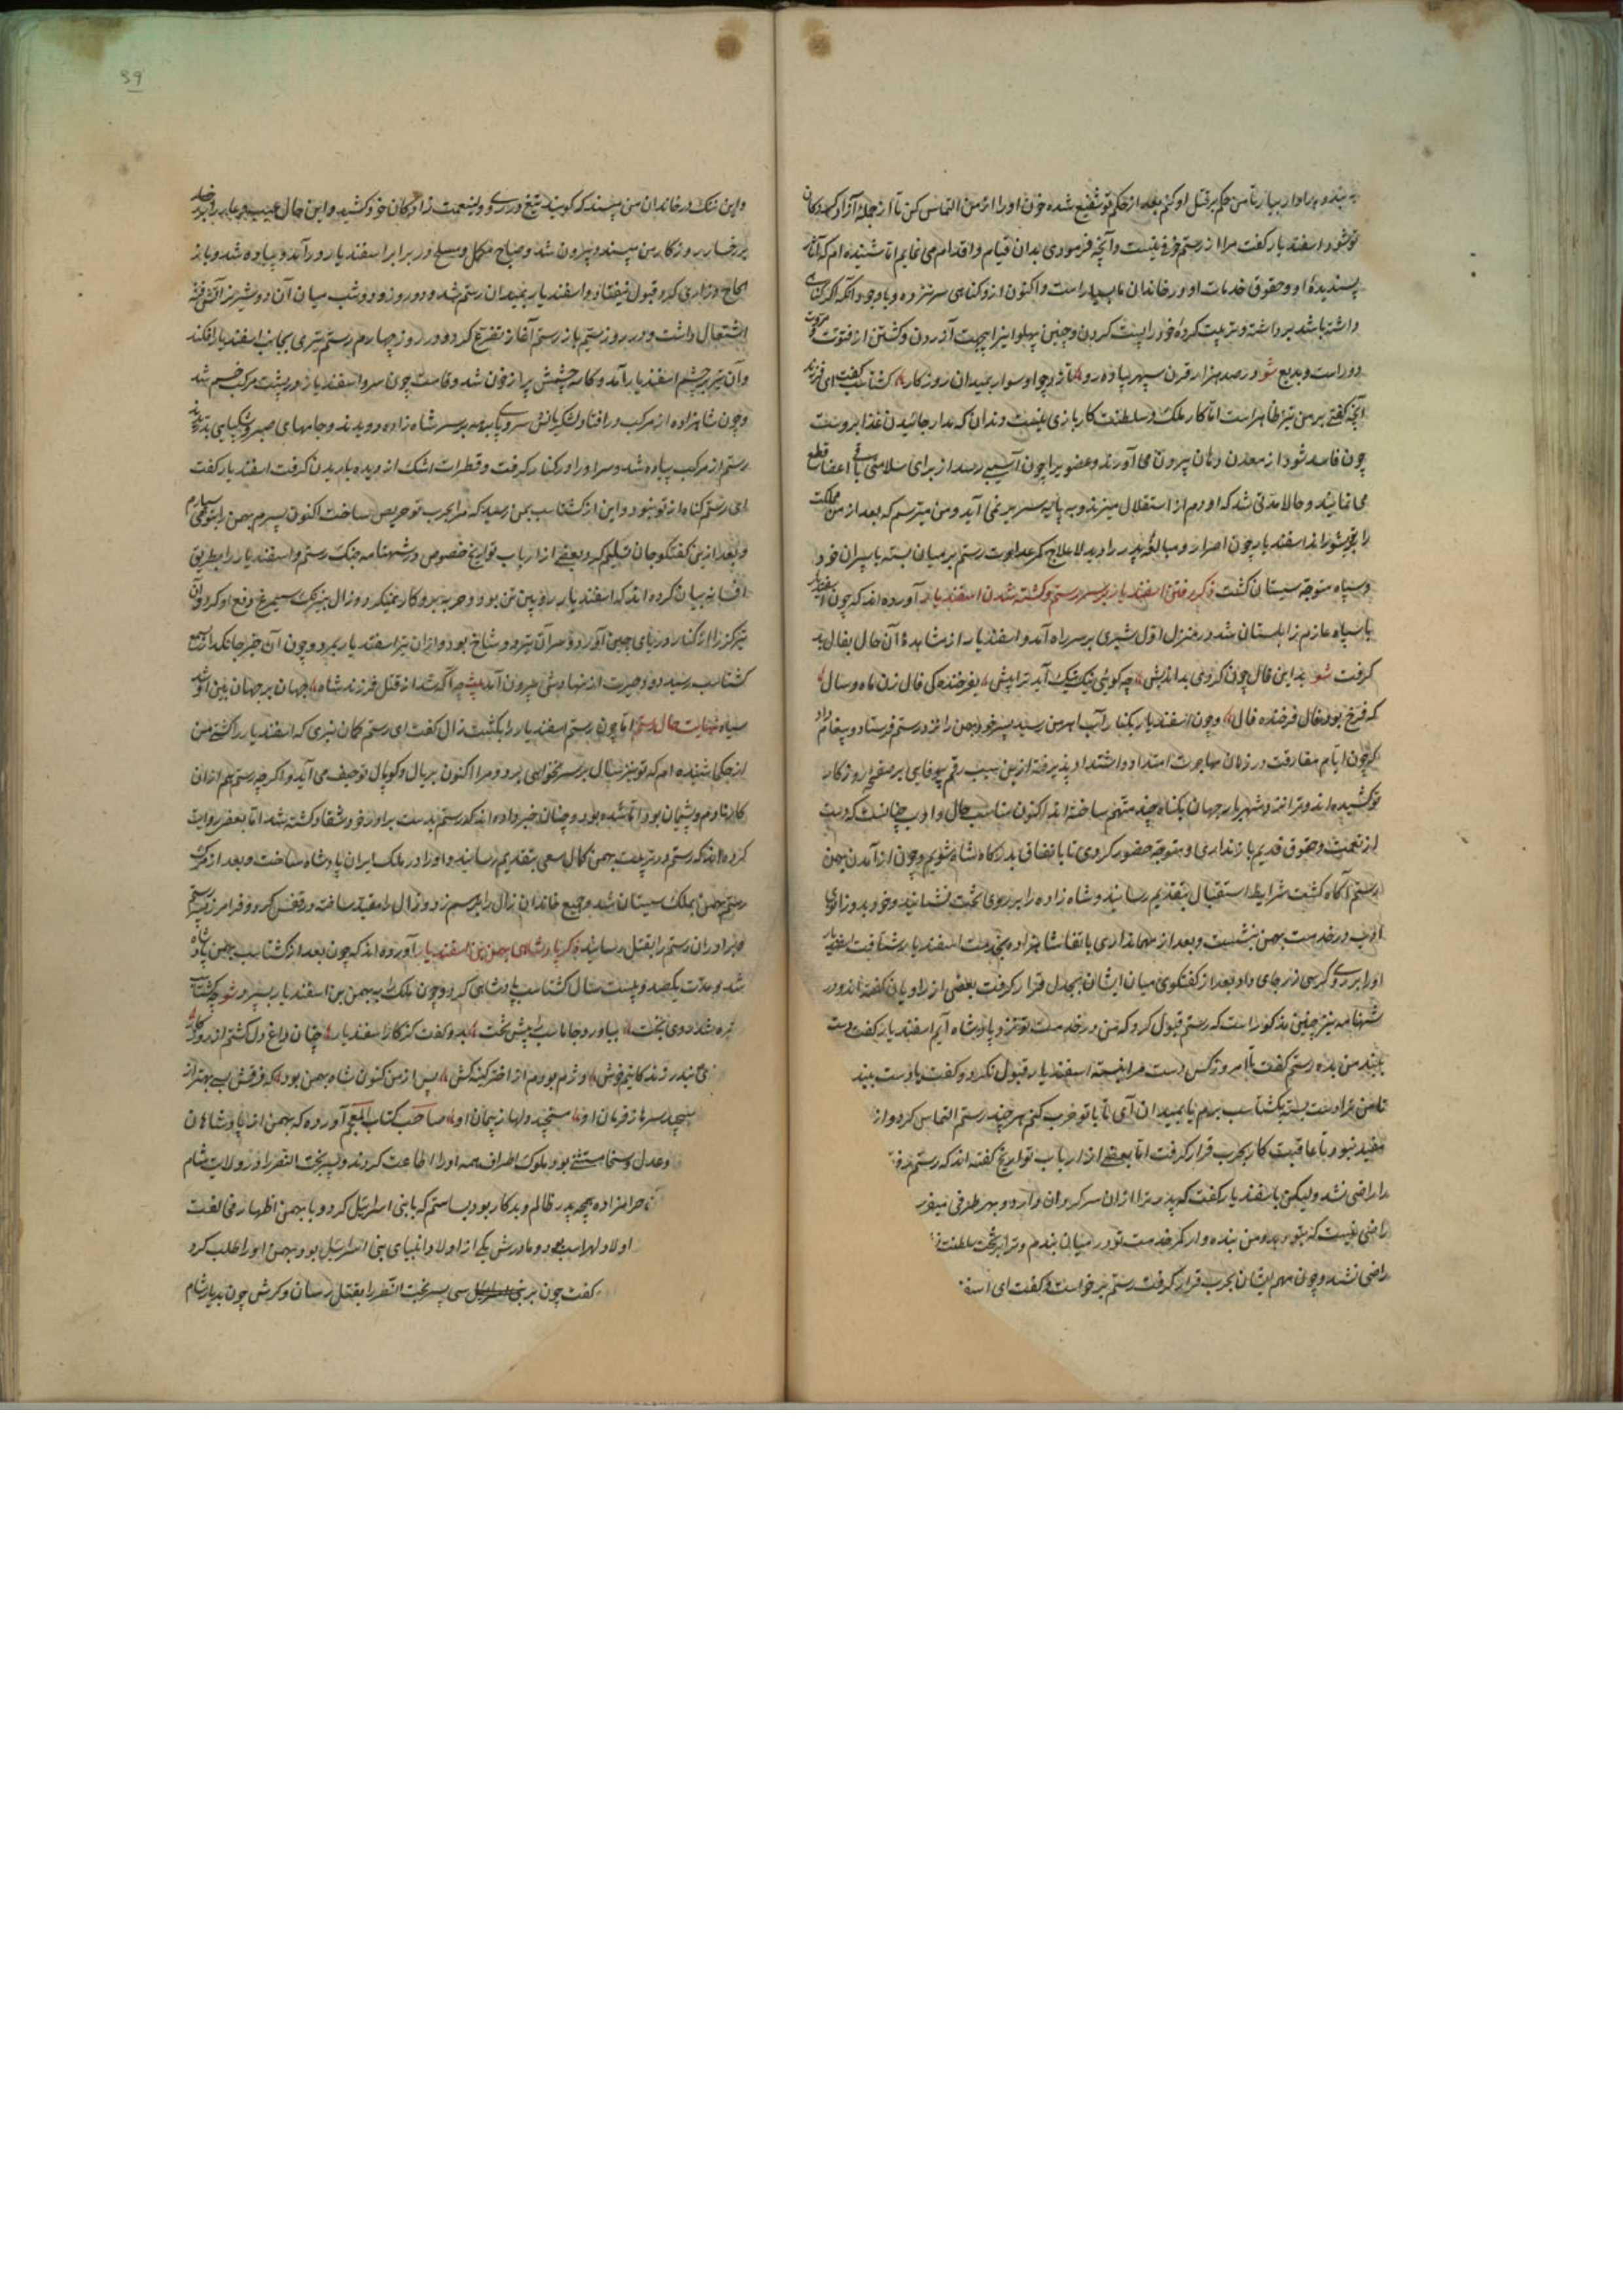 ببندد و بیاور تا من حکم بر قتل او کنم بعد از حکم تو شفیع شده خون او را از من التماس کن تا از جمله آزاد کردگان
تو شود اسفندیار گفت مرا از رستم خوفی نیست و آنچه فرمودی بدان قیام و اقدام می نمایم اما شنیده ام که آثار
پسندیده او و حقوق خدمات او در خاندان ما بسیار است و اکنون ازو گناهی سر نزده و با وجود آنکه اگر گناهی
داشته باشد برداشته و تربیت کرده خود را پست کردن و چنین پهلوانیرا بیجهت آزردن و کشتن از فتوت و مروت
دور است و بدیع شعر در صد هزار قرن سپهر پیاده رو نارد چو او سوار بمیدان روزگار گشتاسب گفت ای فرزند
آنچه گفتی بر من نیز ظاهر است اما کار ملک و سلطنت کار بازی نیست دندان که مدار جائیدن غذا بروست
چون فاسد شود از معدن دهان بیرون می آورند و عضویرا چون آسیبی رسد از برای سلامتی باقی اعضا قطع
می نمایند و حالا مدتی شد که او دم از استقلال میزند و به پایه سریر نمی آید و من میترسم که بعد از من مملکت
را بتو شوراند اسفندیار چون اصرار و مبالغه پدر را دید لاعلاج کمر عداوت رستم بر میان بسته با پسران خود
و سپاه متوجه سیستان گشت ذکر رفتن اسفندیار بر سر رستم و کشته شدن اسفندیار آورده اند که چون اسفندیار
با سپاه عازم زابلستان شد در منزل اول شیری بر سر راه آمد و اسفندیار از مشاهده آن حال بفال بد
گرفت شعر بد این فال چون کردی بد اندیش چه گوئی نیک نیک آید ترا پیش بفرخنده کی فال زن ماه و سال
که فرخ بود فال فرخنده فال و چون اسفندیار بکنار آب هیرمن رسید پسر خود بهمن را نزد رستم فرستاد و پیغام داد
که چون ایام مفارقت و زمان مهاجرت امتداد و اشتداد پذیرفته ازین سبب رقم بیوفایی بر صفحه روزگار
تو کشیده اند و ترا نزد شهریار جهان بگناه چند متهم ساخته اند اکنون مناسب حال و ادب چنانست که دست
از نعمت و حقوق قدیم باز نداری و متوجه حضور گردی تا باتفاق بدرگاه شاه شویم و چون از آمدن بهمن
رستم آگاه گشت شرایط استقبال بتقدیم رسانید و شاه زاده را بر روی تخت نشانید و خود بدو زانوی
ادب در خدمت بهمن بنشست و بعد از مهمانداری باتفاق شاهزاده بخدمت اسفندیار شتافت اسفندیار
او را بر روی کرسی زر جای داد و بعد از گفتگوی میان ایشان بجدل قرار گرفت بعضی از راویان گفته اند و در
شهنامه نیز چنین مذکور است که رستم قبول کرد که من در خدمت تو نزد پادشاه آیم اسفندیار گفت دست
ببند من بده رستم گفت تا امروز کس دست مرا نبسته اسفندیار قبول نکرد و گفت یا دست ببند
تا من ترا دست بسته بگشتاسب برم یا بمیدان آی تا با تو حرب کنم هر چند رستم التماس کرد و از
مفید نبود تا عاقبت کار بحرب قرار گرفت اما بعضی از ارباب تواریخ گفته اند که رستم
را راضی نشد و لیکن باسفندیار گفت که پدر ترا ازان سرگردان دارد و بهر طرفی میفر
راضی نیست که بتو دهد و من بنده وار کمر خدمت تو در میان بندم و ترا بر تخت سلطنت
راضی نشد و چون مهم ایشان بحرب قرار گرفت رستم برخواست و گفت ای اسف
39
و این ننک در خاندان من مپسند که گویند تیغ در روی ولینعمت زادگان خود کشید و این حال عیب و عار بر
بر رخسار روزگار من مپسند و بیرون شد و صباح مکمل و مسلح در برابر اسفندیار در آمد و پیاده شد و باز
الحاح و زاری کرد قبول نیفتاد و اسفندیار بمیدان رستم شد و دو روز و دو شب میان آن دو شیر نر آتش فتنه
اشتعال داشت و در روز سیم باز رستم آغاز تضرع کرد و در روز چهارم رستم تیری بجانب اسفندیار افکند
و آن تیر بر چشم اسفندیار آمد و کاسه چشمش پر از خون شد و قامت چون سرو اسفندیار در پشت مرکب خم شد
و چون شاهزاده از مرکب در افتاد لشکریانش سر و پا برهنه بر سر شاه زاده دویدند و جامهای صبر و شکیبایی بدریدند
رستم از مرکب پیاده شد و سر او را در کنار گرفت و قطرات اشک از دیده باریدن گرفت اسفندیار گفت
ای رستم گناه از تو نبود و این از گشتاسب بمن رسید که مرا بحرب تو حریص ساخت اکنون پسرم بهمن را بتو می سپارم
و بعد ازین گفتگو جان تسلیم کرد و بعضی از ارباب تواریخ خصوص در شهنامه جنک رستم و اسفندیار را بطریق
افسانه بیان کرده اند که اسفندیار رویین تن بود و حربه برو کار نمیکرد و زال بنیرنک سیمرغ دفع او کرد و آن
تیر گز را از کنار دریای چین آورد و سر آن تیر دو شاخ بود و ازان تیر اسفندیار بمرد و چون آن خبر جانگداز بسمع
گشتاسب رسید دود حیرت از نهادش بیرون آمد بیت چو آگه شد از قتل فرزند شاه جهان بر جهان بین او شد
سیاه نهایت حال رستم اما چون رستم اسفندیار را بکشت زال گفت ای رستم گمان نبری که اسفندیار را کشتی من
از حکما شنیده ام که تو نیز سال بر سر نخواهی برد و مرا اکنون بر یال و کوپال تو حیف می آید و اگر چه رستم هم ازان
کار نادم و پشیمان بود اما شده بود و چنان خبر داده اند که رستم بدست برادر خود شغاد کشته شد اما بعضی روایت
کرده اند که رستم در تربیت بهمن کمال سعی بتقدیم رسانید و او را در ملک ایران پادشاه ساخت و بعد از مرک
رستم بهمن بملک سیستان شد و جمیع خاندان زال را برهم زد و زال را مقید ساخته در قفس کرد و فرامرز پسر رستم
و برادران رستم را بقتل رسانید ذکر پادشاهی بهمن بن اسفندیار آورده اند که چون بعد از گشتاسب بهمن پادشاه
شد و مدت یکصد و بیست سال گشتاسب پادشاهی کرد و چون ملک را به بهمن بن اسفندیار سپرد شعر چو گشتاسب
تیره شد روی تخت بیاورد جاماسب را پیش تخت بدو گفت کز کار اسفندیار چنان داغ دل گشتم از روزگار
نیم خوش دژم بودم از اختر کینه کش پس از من کنون شاه بهمن بود که فر فرش بی بهتر از
نپیچد سر ها ز فرمان او مپیچد دلها ز پیمان او صاحب کتاب المعجم آورده که بهمن از پادشاهان
و عدل و سخا مستثنی بود و ملوک اطراف همه او را اطاعت کردند و پسر بخت النصر را در ولایت شام
حرامزاده همچو پدر ظالم و بدکار بود بسا ستم که با بنی اسرائیل کرد و با بهمن اظهار مخالفت
اولاد لهراسب بود و مادرش یکی از اولاد انبیای بنی اسرائیل بود بهمن او را طلب کرد
گفت چون بر بنی اسرائیل سی پسر بخت النصر را بقتل رسان و کرش چون بدیار شام